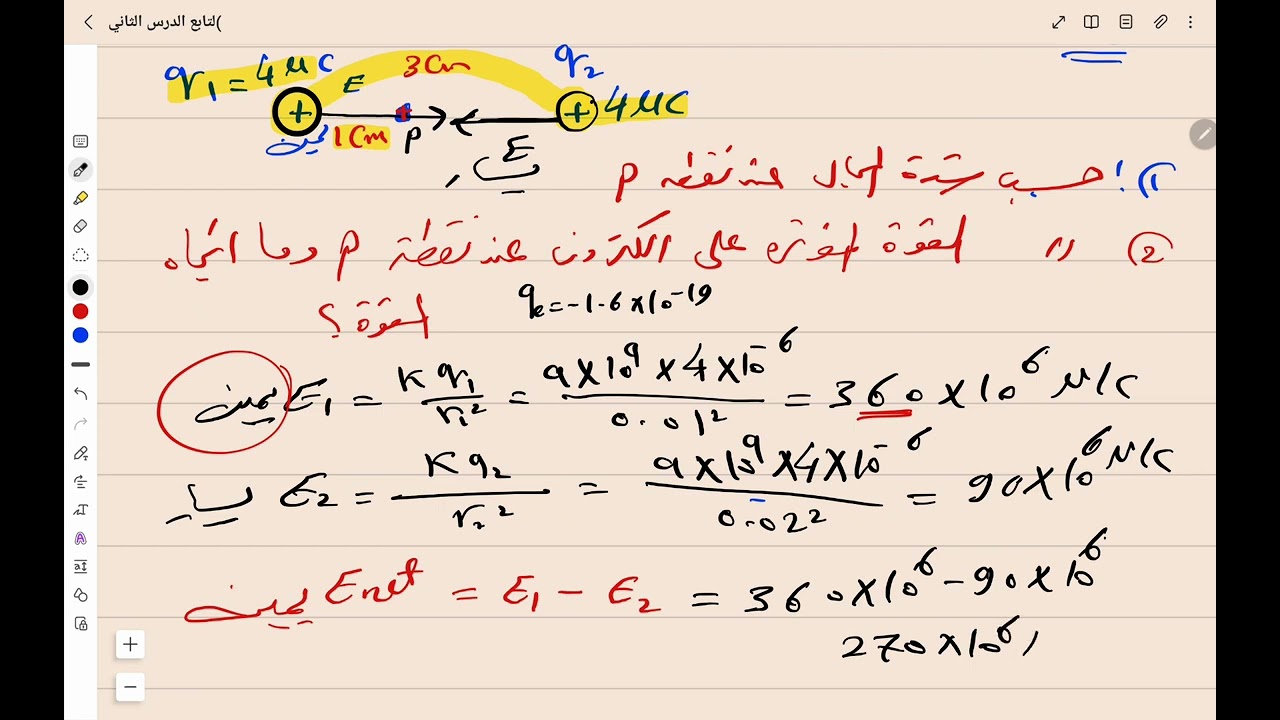 لتابع الدرس الثاني(
q1 = 4μC E 3cm q2
+ + 4μC
يمين 1cm P E
يسار
(1 احسب شدة المجال عند نقطه P
(2 〃 القوة المؤثره على الكترون عند نقطة P وما اتجاه
القوة؟ qe = -1.6×10^-19
يمين E1 = K q1 / r1² = 9×10^9 × 4×10^-6 / 0.01² = 360×10^6 N/C
يسار E2 = K q2 / r2² = 9×10^9 ×4×10^-6 / 0.02² = 90×10^6 N/C
يمين Enet = E1 - E2 = 360×10^6 - 90×10^6
270×10^6